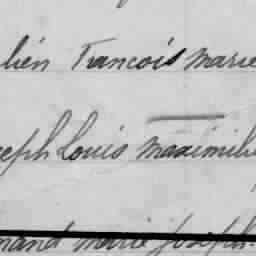 lien François marie
seph Louis maximilie
mand marie joseph